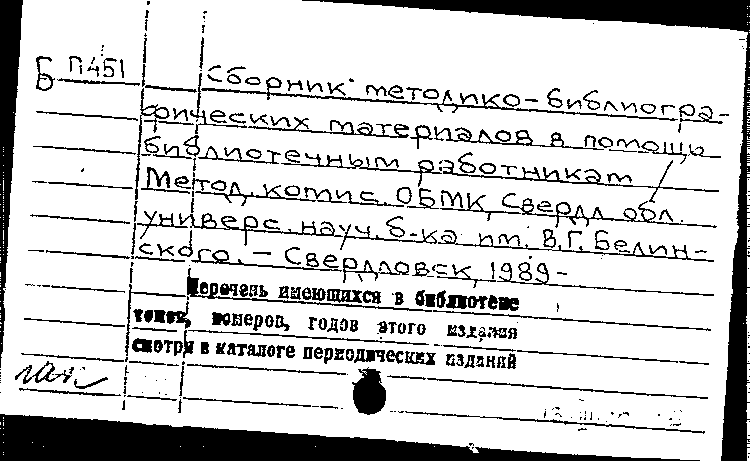 Б П451 Сборник методико-библиогра-
фических материалов в помощь
библиотечным работникам /
Метод. комис. ОБМК, Свердл. обл.
универс. науч. б-ка им. В.Г. Белин-
ского. — Свердловск, 1989-
Перечень имеющихся в библиотеке
томов, номеров, годов этого издания
смотри в каталоге периодических изданий